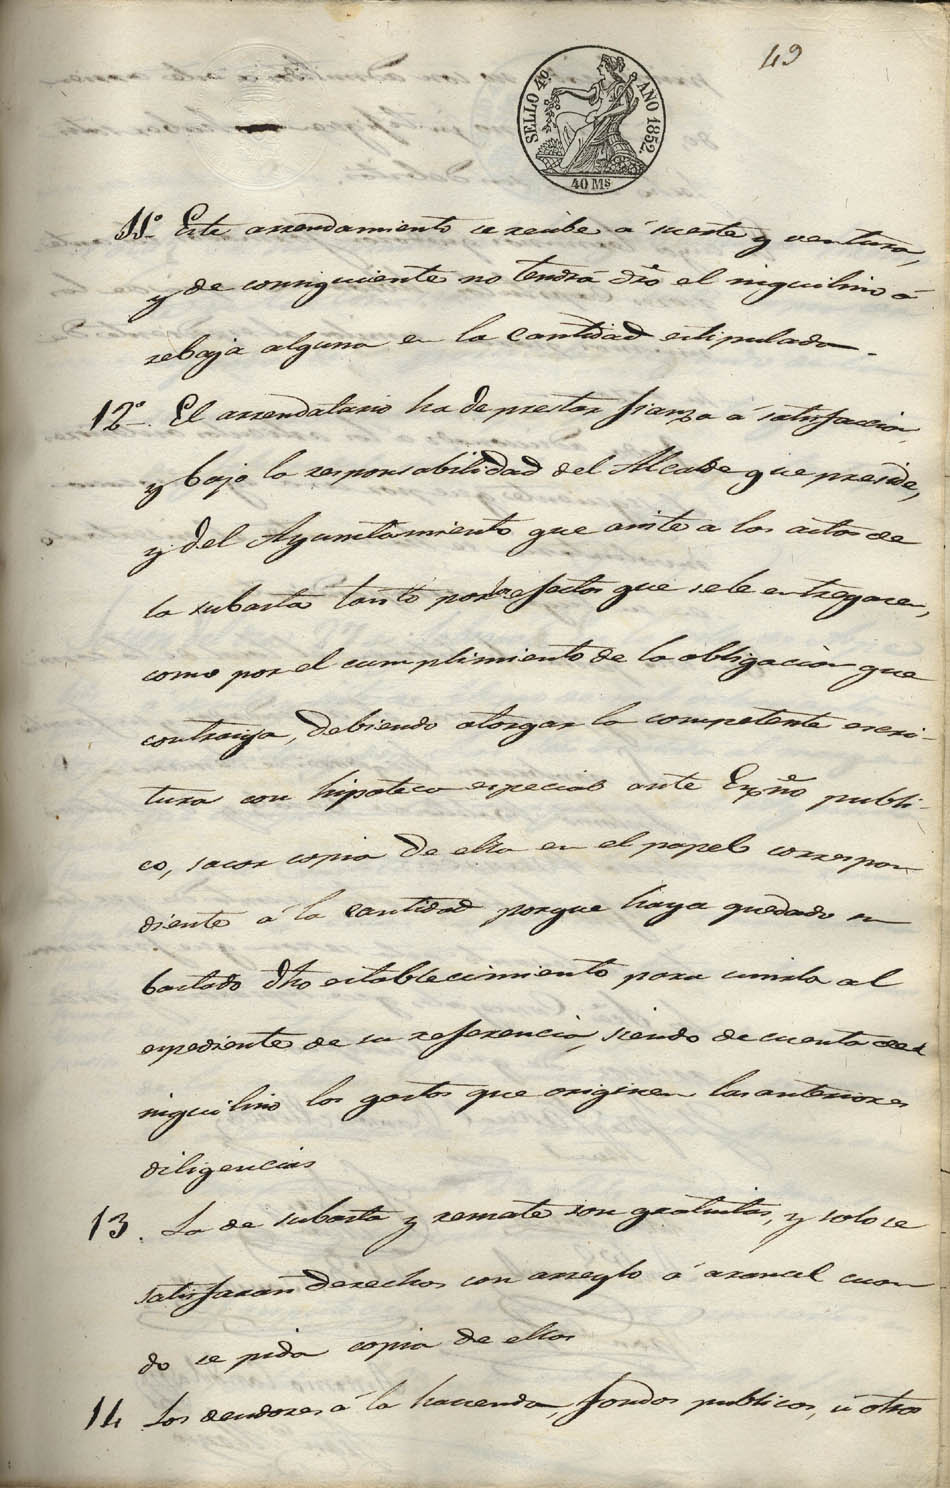 49
SELLO 4º. AÑO 1852.
40 Ms
11º Este arrendamiento se recibe á suerte y ventura,
y de consiguiente no tendrá dro el inquilino á
rebaja alguna en la cantidad estipulada.
12º. El arrendatario ha de prestar fianza á satisfaccion,
y bajo la responsabilidad del Alcalde que preside,
y del Ayuntamiento que asiste a los actos de
la subasta tanto por los efectos que se le entregaren,
como por el cumplimiento de la obligacion que
contraiga, debiendo otorgar la competente escri-
tura con hipoteca especial ante Esno publi-
co, sacar copia de ella en el papel correspon
diente á la cantidad porque haya quedado su
bastado dho establecimiento para unirla al
espediente de su referencia, siendo de cuenta del
inquilino los gastos que originen las anteriores
diligencias
13. La de subasta y remate son gratuitas, y solo se
satisfaran derechos con arreglo á arancel cuan
do se pida copia de ellas
14 Los deudores á la hacienda, fondos publicos, ú otros